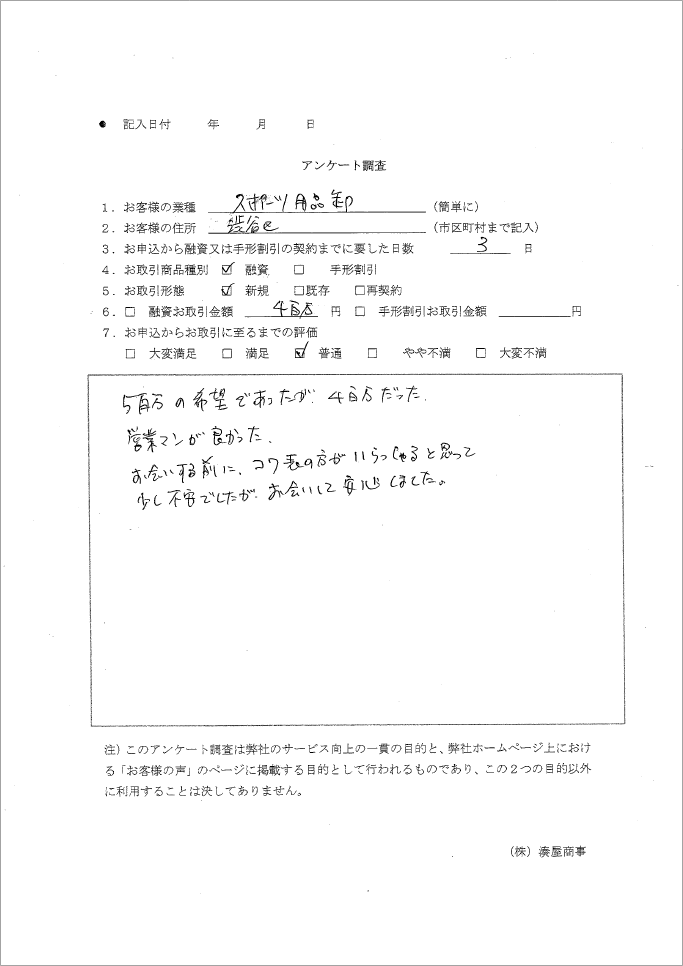 ● 記入日付　　年　　月　　日
アンケート調査
1．お客様の業種　スポーツ用品卸　（簡単に）
2．お客様の住所　渋谷区　（市区町村まで記入）
3．お申込から融資又は手形割引の契約までに要した日数　3　日
4．お取引商品種別　☑　融資　□　手形割引
5．お取引形態　☑　新規　□既存　□再契約
6．□　融資お取引金額　4百万　円　□　手形割引お取引金額　　円
7．お申込からお取引に至るまでの評価
□　大変満足　□　満足　☑　普通　□　やや不満　□　大変不満
5百万の希望であったが、4百万だった。
営業マンが良かった、
お会いする前に、コワ表の方がいらっしゃると思って
少し不安でしたが、お会いして安心しました。
注）このアンケート調査は弊社のサービス向上の一貫の目的と、弊社ホームページ上におけ
る「お客様の声」のページに掲載する目的として行われるものであり、この２つの目的以外
に利用することは決してありません。
（株）湊屋商事